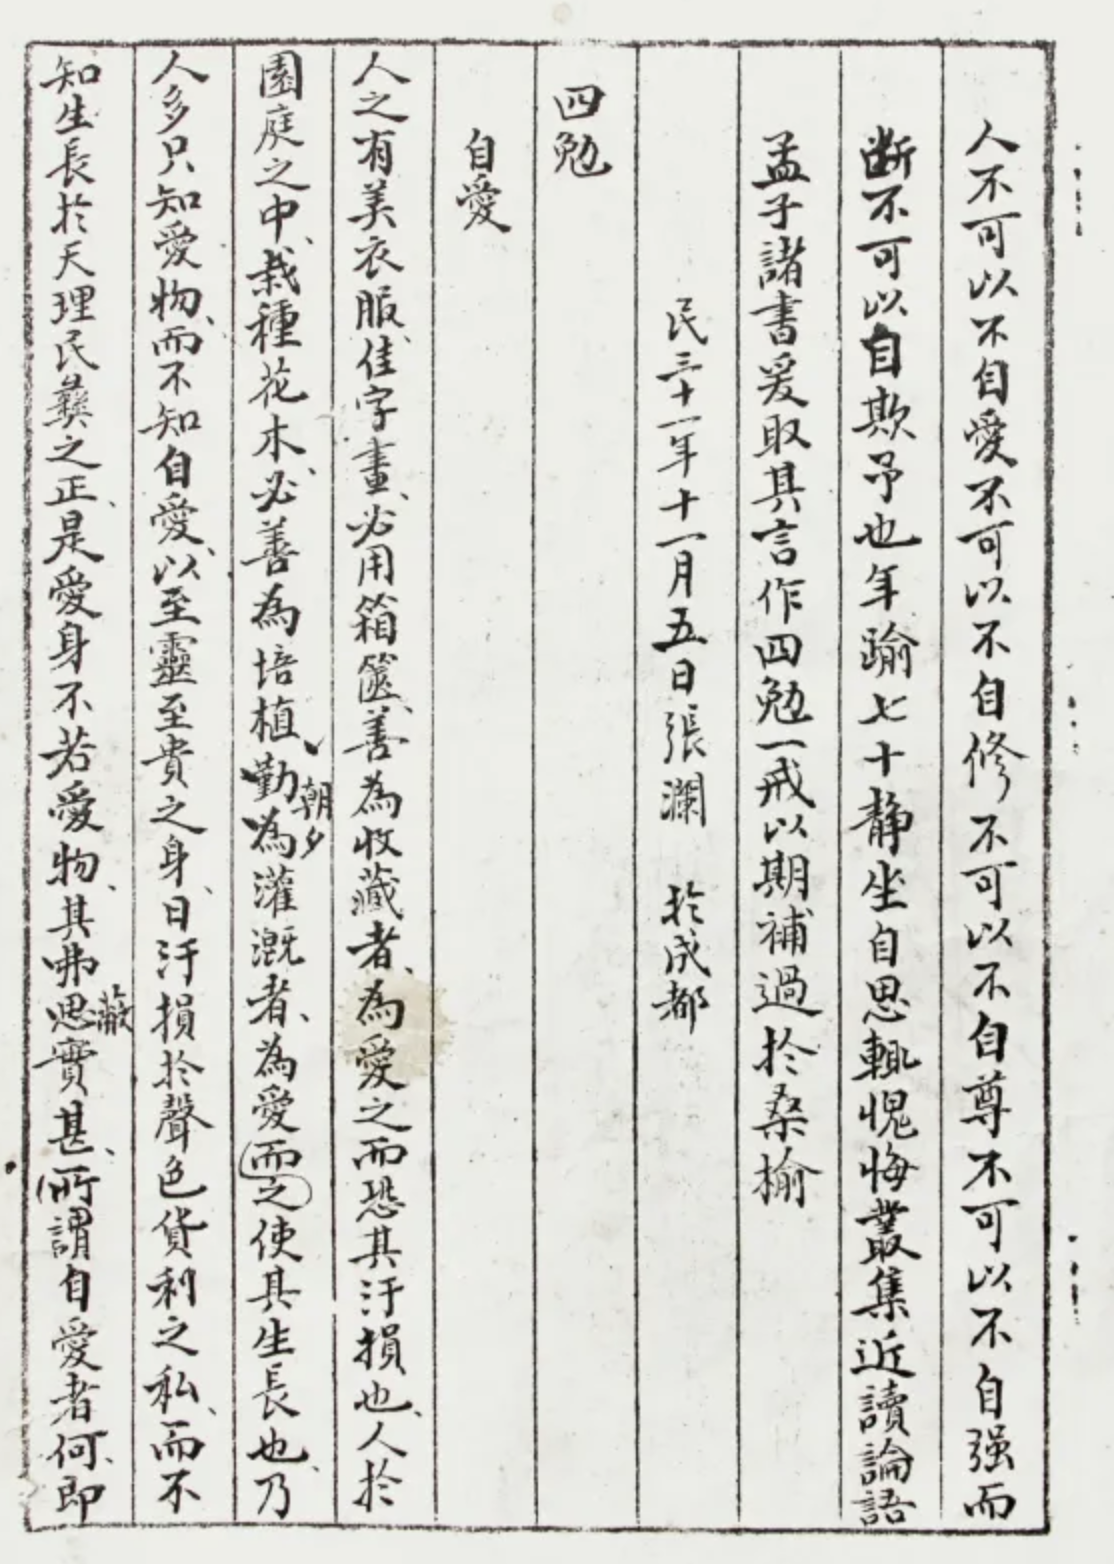 人不可以不自愛不可以不自修不可以不自尊不可以不自强而
斷不可以自欺予也年踰七十静坐自思輒愧悔叢集近讀論語
孟子諸書爰取其言作四勉一戒以期補過於桑榆
民三十一年十一月五日張瀾 於成都
四勉
自愛
人之有美衣服、佳字畫、必用箱篋、善為收藏者、為愛之而恐其汙損也、人於
園庭之中、栽種花木、必善為培植、朝夕勤為灌溉者、為愛而之使其生長也、乃
人多只知愛物、而不知自愛、以至靈至貴之身、日汙損於聲色貨利之私、而不
知生長於天理民彝之正、是愛身不若愛物、其弗思蔽實甚、所謂自愛者何、即